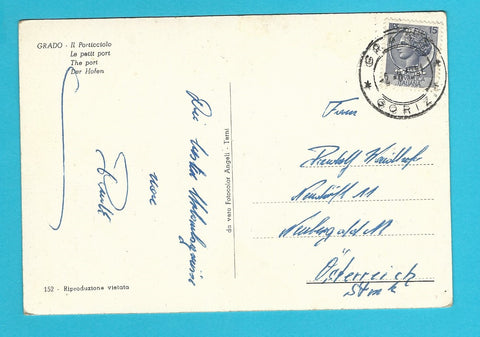 GRADO - Il Porticciolo
Le petit port
The port
Der Hafen
Die besten Urlaubsgrüsse
von
152 - Riproduzione vietata
da vero Fotocolor Angeli - Terni
15
GRADO
GORIZIA
Fam
Rudolf
11
Neuberg a/d M
Österreich
Stmk